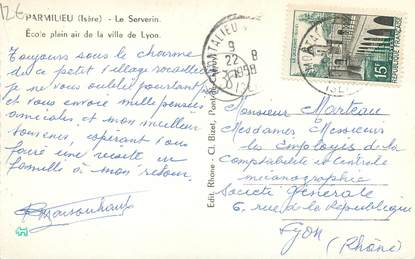 12E
PARMILIEU (Isère) - Le Serverin.
École plein air de la ville de Lyon.
Toujours sous le charme
de ce petit village rocailleux
je ne vous oublie pourtant pas
et vous envoie mille pensées
amicales et mon meilleur
souvenir, espérant vous
faire une visite en
famille à mon retour.
Edit. Rhone - Cl. Bizet.
MONTALIEU
9
22 8
1958
15F
REPUBLIQUE FRANÇAISE
Monsieur Marteau
Mesdames Messieurs
les Employés de la
Comptabilité et Centrale
mécanographie
Société Générale
6, rue de la République
Lyon
(Rhône)